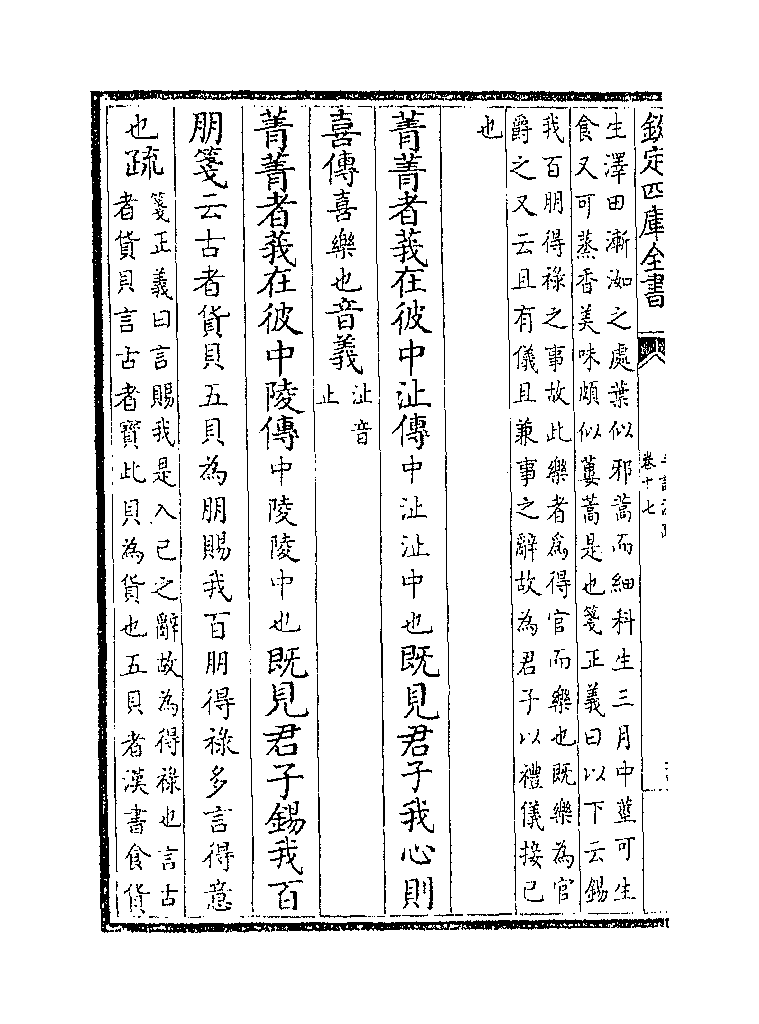 欽定四庫全書
卷十七
生澤田漸洳之處葉似邪蒿而細科生三月中莖可生
食又可蒸香美味頗似蔞蒿是也箋正義曰以下云錫
我百朋得祿之事故此樂者為得官而樂也既樂為官
爵之又云且有儀且兼事之辭故為君子以禮儀接己
也
菁菁者莪在彼中沚傳中沚沚中也既見君子我心則
喜傳喜樂也音義沚音止
菁菁者莪在彼中陵傳中陵陵中也既見君子錫我百
朋箋云古者貨貝五貝為朋賜我百朋得祿多言得意
也疏箋正義曰言賜我是入己之辭故為得祿也言古
者貨貝言古者寶此貝為貨也五貝者漢書食貨